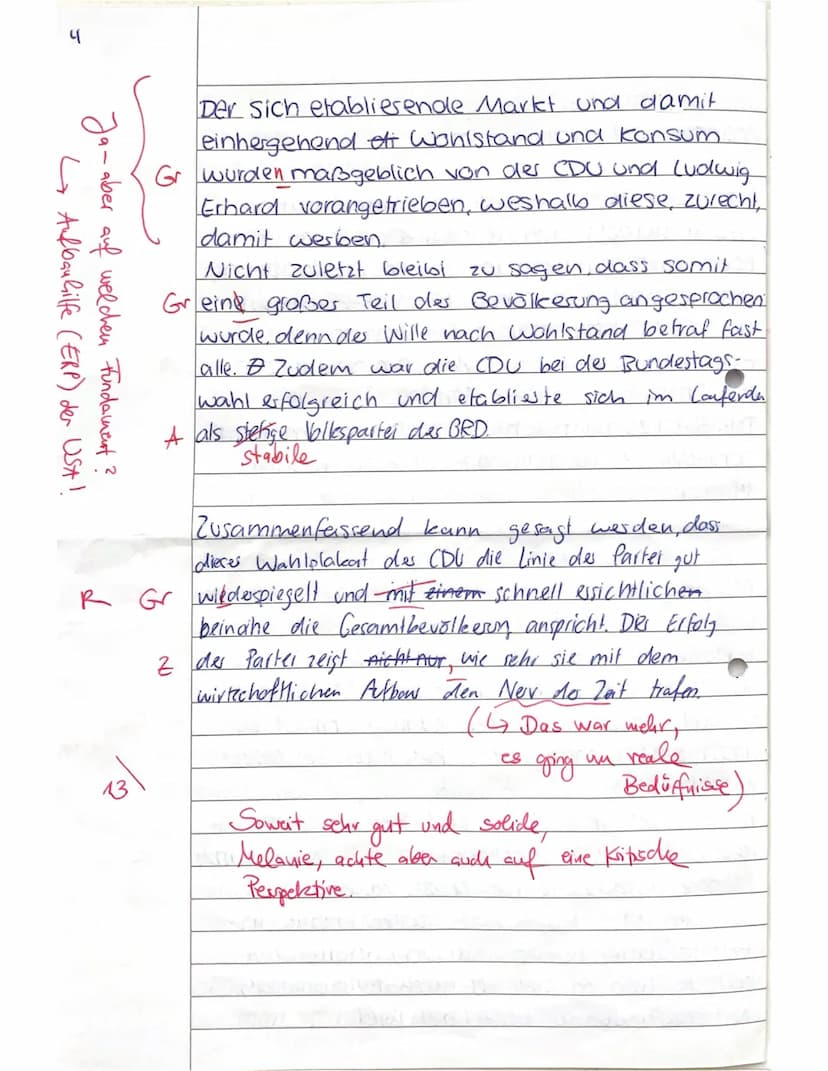 4
Der sich etablierende Markt und damit
einhergehend Wohlstand und Konsum
Gr wurden maßgeblich von der CDU und Ludwig
Erhard vorangetrieben, weshalb diese, zurecht,
damit werben.
Nicht zuletzt bleibt zu sagen, dass somit
Gr eine großer Teil der Bevölkerung angesprochen
wurde, denn der Wille nach Wohlstand betraf fast
alle. Zudem war die CDU bei der Bundestags-
wahl erfolgreich und etablierte sich im Laufenden
A als stetige Volkspartei der BRD.
stabile
Ja – aber auf welchem Fundament?
↳ Aufbauhilfe (ERP) der USA!
Zusammenfassend kann gesagt werden, dass
dieses Wahlplakat der CDU die Linie der Partei gut
R Gr widerspiegelt und mit einem schnell ersichtlichen
beinahe die Gesamtbevölkerung anspricht. Der Erfolg
Z der Partei zeigt nicht nur, wie sehr sie mit dem
wirtschaftlichen Aufbau den Nerv der Zeit trafen.
(↳ Das war mehr,
es ging um reale
Bedürfnisse)
13
Soweit sehr gut und solide,
Melanie, achte aber auch auf eine kritische
Perspektive.